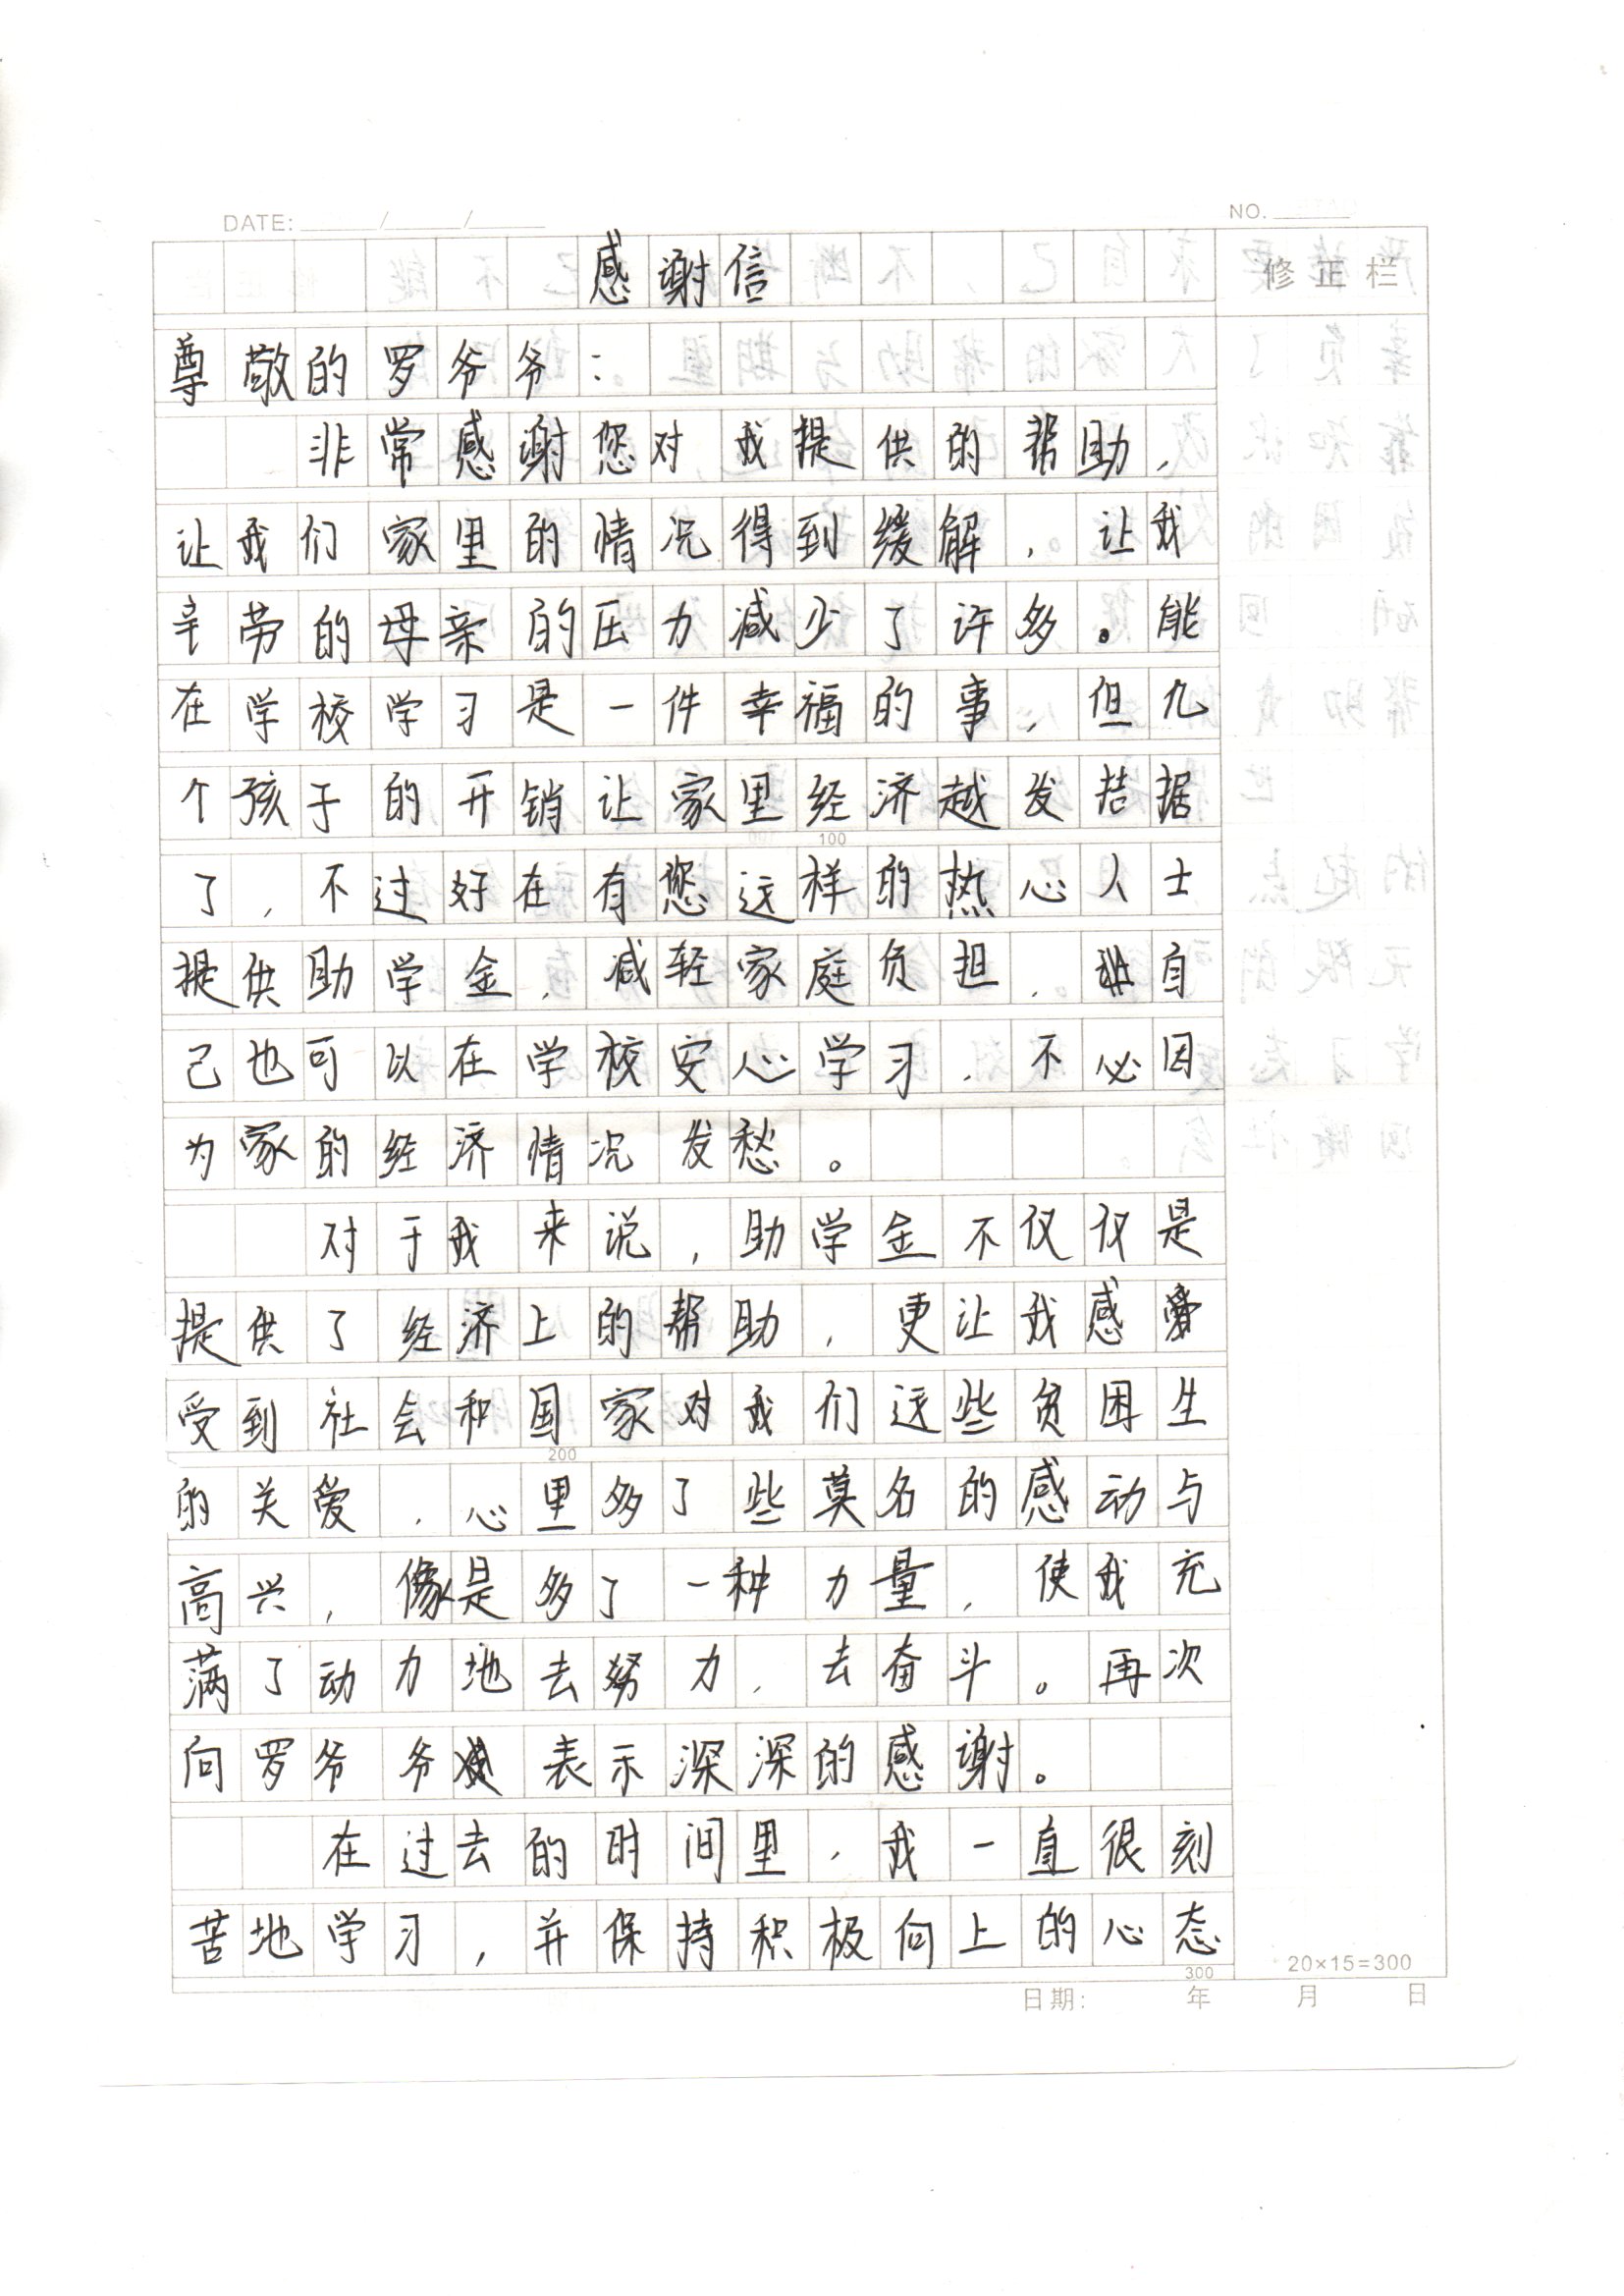 DATE: / / NO.
感谢信
修正栏
尊敬的罗爷爷：
非常感谢您对我提供的帮助，
让我们家里的情况得到缓解，让我
辛劳的母亲的压力减少了许多。能
在学校学习是一件幸福的事，但九
个孩子的开销让家里经济越发拮据
100
了，不过好在有您这样的热心人士
提供助学金，减轻家庭负担，让自
己也可以在学校安心学习，不必因
为家的经济情况发愁。
对于我来说，助学金不仅仅是
提供了经济上的帮助，更让我感
受到社会和国家对我们这些贫困生
200
的关爱，心里多了些莫名的感动与
高兴，像是多了一种力量，使我充
满了动力地去努力，去奋斗。再次
向罗爷爷表示深深的感谢。
在过去的时间里，我一直很刻
苦地学习，并保持积极向上的心态
300 20×15=300
日期： 年 月 日